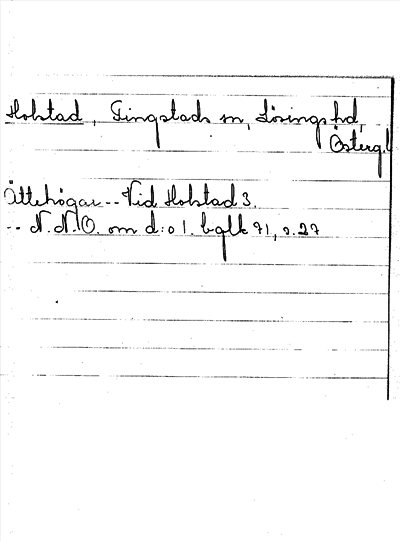 Holstad, Gingstads sn, Lösings hd,
Österg.l
Ättehögar -- Vid Holstad 3.
-- N.N.O. om d:o 1. bglk 71, s. 27